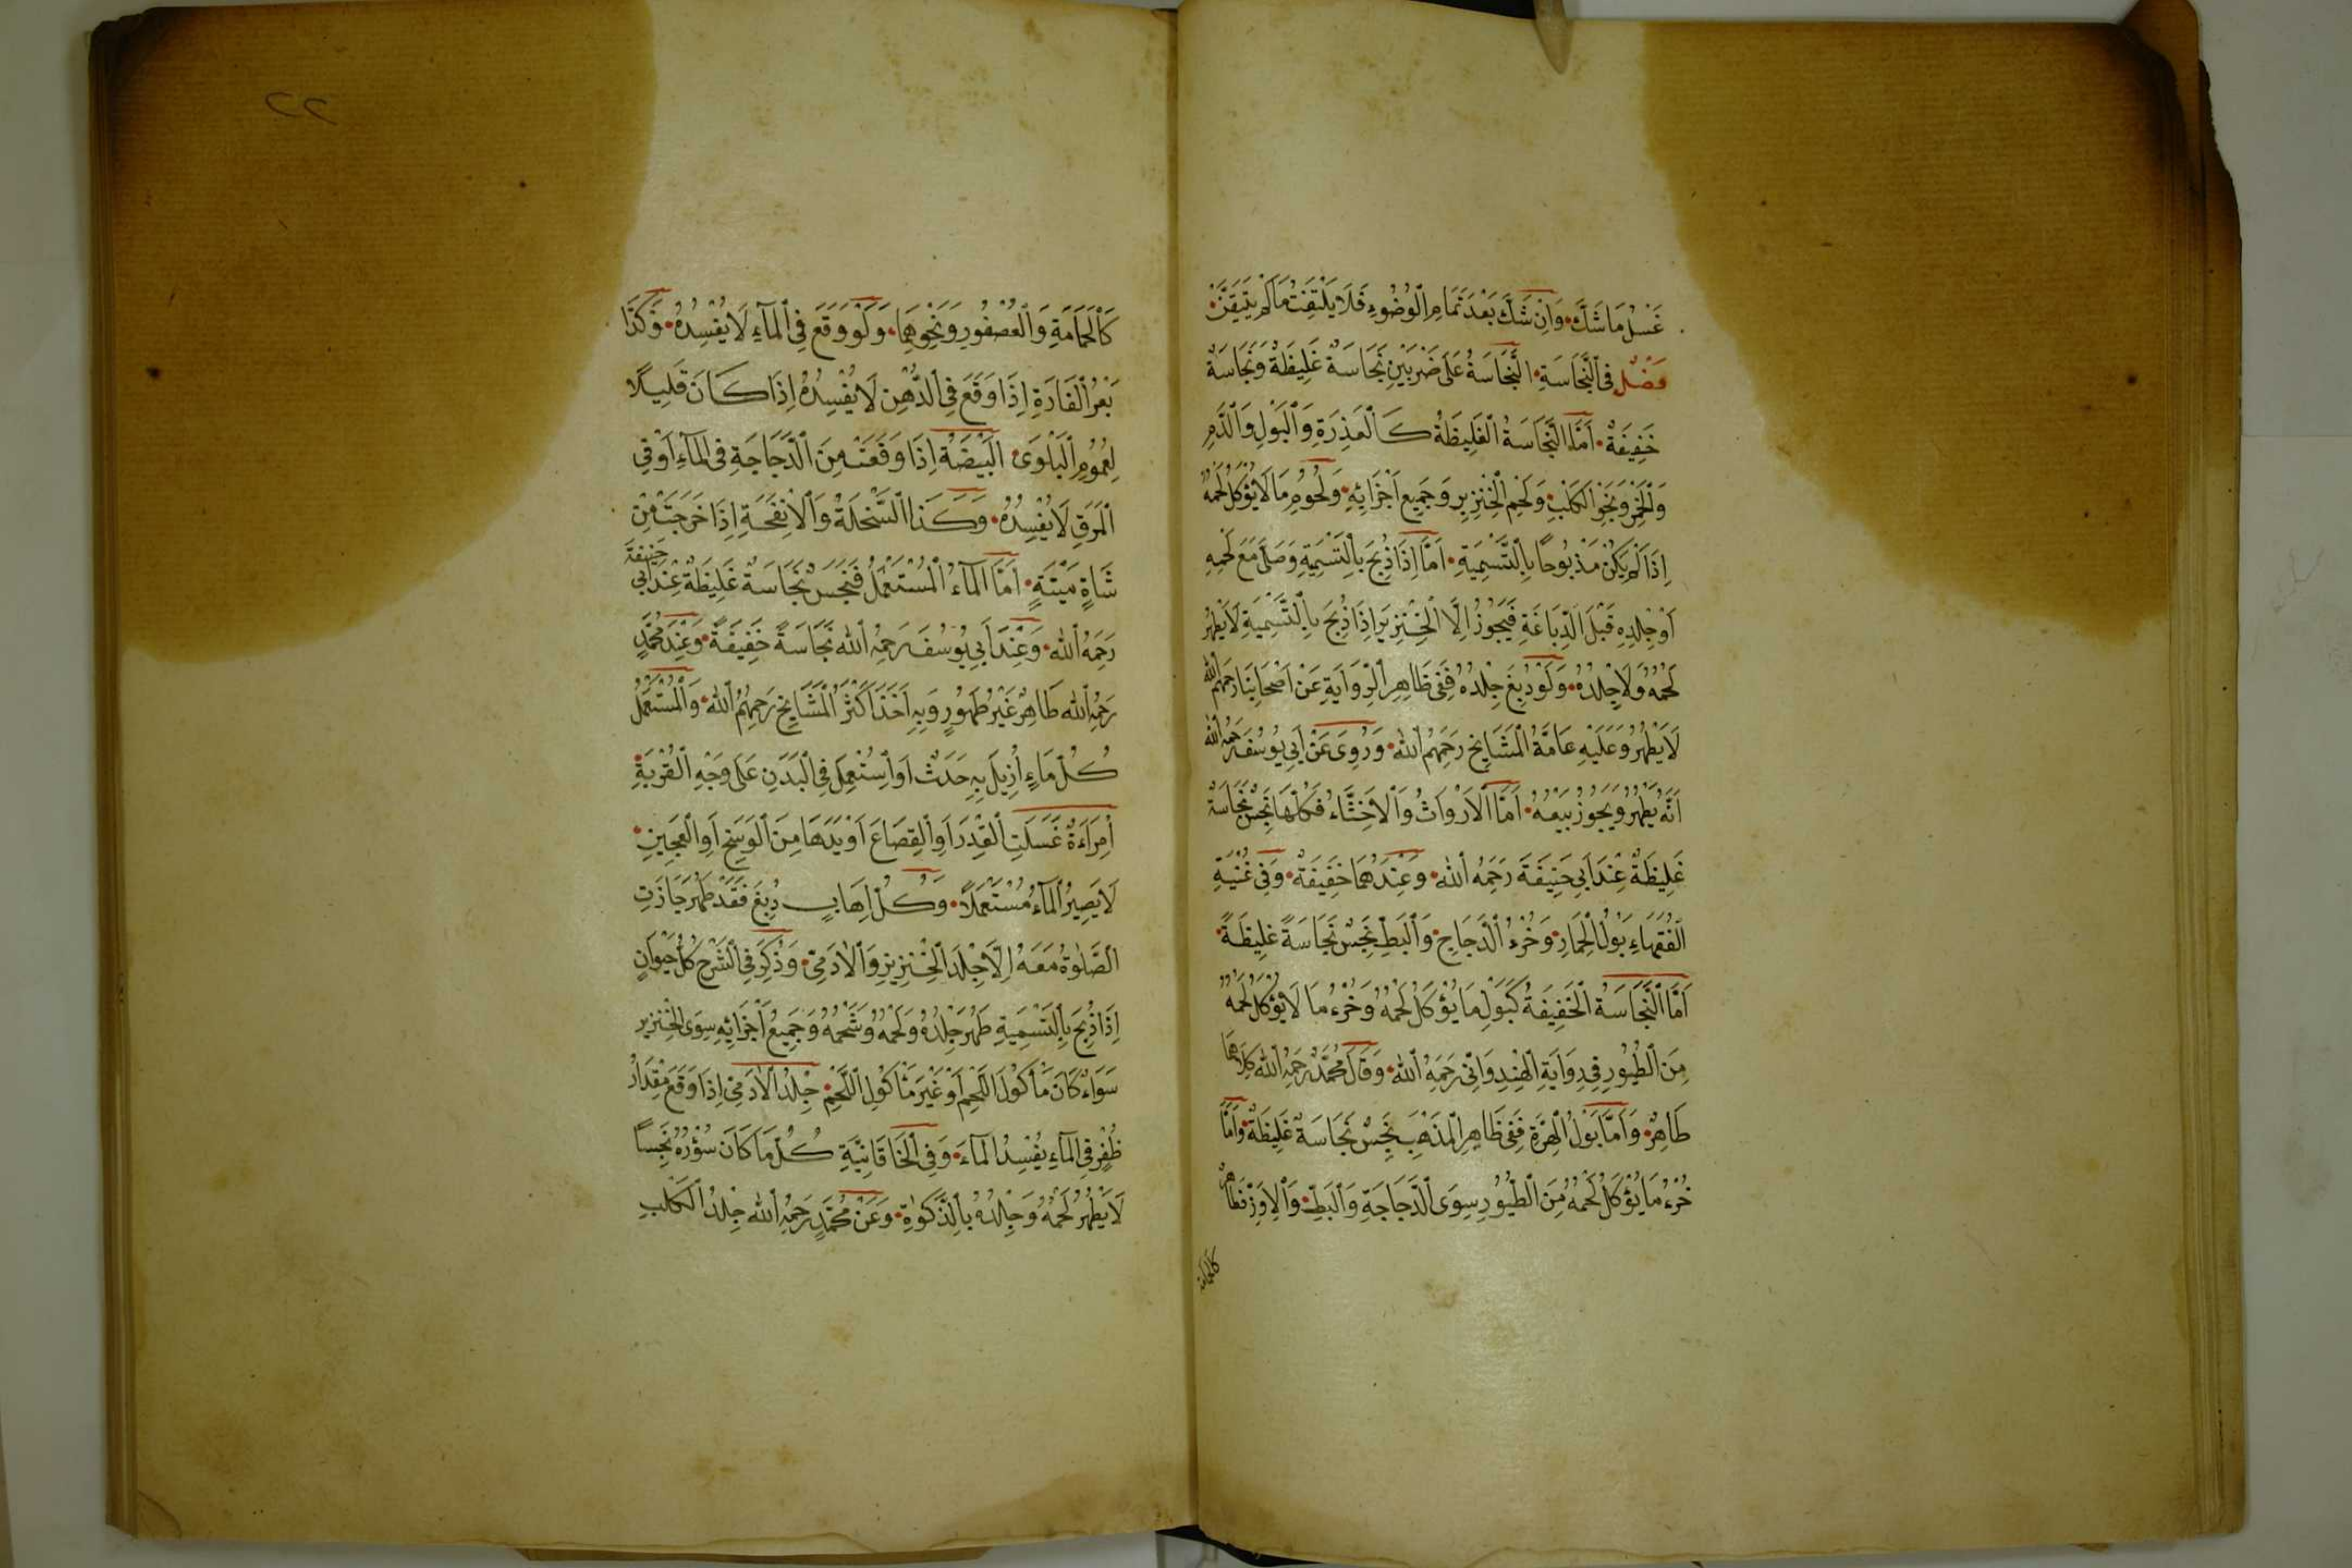 غَسْلُ مَا شَكَّ وَاِنْ شَكَّ بَعْدَ تَمَامِ الْوُضُوءِ فَلَا يَلْتَفِتُ مَا لَمْ يَتَيَقَّنْ
فَصْلٌ فِى النَّجَاسَةِ النَّجَاسَةُ عَلَى ضَرْبَيْنِ نَجَاسَةٌ غَلِيظَةٌ وَنَجَاسَةٌ
خَفِيفَةٌ اَمَّا النَّجَاسَةُ الْغَلِيظَةُ كَالْعَذِرَةِ وَالْبَوْلِ وَالدَّمِ
وَالْخَمْرِ وَنَجْوِ الْكَلْبِ وَلَحْمِ الْخِنْزِيرِ وَجَمِيعِ اَجْزَائِهِ وَلُحُومِ مَا لَا يُؤْكَلُ لَحْمُهُ
اِذَا لَمْ يَكُنْ مَذْبُوحًا بِالتَّسْمِيَةِ اَمَّا اِذَا ذُبِحَ بِالتَّسْمِيَةِ وَصَلَّى مَعَ لَحْمِهِ
اَوْ جِلْدِهِ قَبْلَ الدِّبَاغَةِ فَيَجُوزُ اِلَّا الْخِنْزِيرَ اِذَا ذُبِحَ بِالتَّسْمِيَةِ لَا يَطْهُرُ
لَحْمُهُ وَلَا جِلْدُهُ وَلَوْ دُبِغَ جِلْدُهُ فَفِى ظَاهِرِ الرِّوَايَةِ عَنْ اَصْحَابِنَا رَحِمَهُمُ اللّٰهُ
لَا يَطْهُرُ وَعَلَيْهِ عَامَّةُ الْمَشَايِخِ رَحِمَهُمُ اللّٰهُ وَرُوِىَ عَنْ اَبِى يُوسُفَ رَحِمَهُ اللّٰهُ
اَنَّهُ يَطْهُرُ وَيَجُوزُ بَيْعُهُ اَمَّا الْاَرْوَاثُ وَالْاَخْثَاءُ فَكُلُّهَا نَجِسٌ نَجَاسَةً
غَلِيظَةً عِنْدَ اَبِى حَنِيفَةَ رَحِمَهُ اللّٰهُ وَعِنْدَهُمَا خَفِيفَةٌ وَفِى غُنْيَةِ
الْفُقَهَاءِ بَوْلُ الْحِمَارِ وَخُرْءُ الدَّجَاجِ وَالْبَطِّ نَجِسٌ نَجَاسَةً غَلِيظَةً
اَمَّا النَّجَاسَةُ الْخَفِيفَةُ كَبَوْلِ مَا يُؤْكَلُ لَحْمُهُ وَخُرْءُ مَا لَا يُؤْكَلُ لَحْمُهُ
مِنَ الطُّيُورِ فِى رِوَايَةِ الْهِنْدِوَانِىِّ رَحِمَهُ اللّٰهُ وَقَالَ مُحَمَّدٌ رَحِمَهُ اللّٰهُ كِلَاهُمَا
طَاهِرٌ وَاَمَّا بَوْلُ الْهِرَّةِ فَفِى ظَاهِرِ الْمَذْهَبِ نَجِسٌ نَجَاسَةً غَلِيظَةً وَاَمَّا
خُرْءُ مَا يُؤْكَلُ لَحْمُهُ مِنَ الطُّيُورِ سِوَى الدَّجَاجَةِ وَالْبَطِّ وَالْاِوَزِّ فَطَاهِرٌ
كالحمامة
٢٢
كَالْحَمَامَةِ وَالْعُصْفُورِ وَنَحْوِهِمَا وَلَوْ وَقَعَ فِى الْمَاءِ لَا يُفْسِدُهُ وَكَذَا
بَعْرُ الْفَارَةِ اِذَا وَقَعَ فِى الدُّهْنِ لَا يُفْسِدُهُ اِذَا كَانَ قَلِيلًا
لِعُمُومِ الْبَلْوَى الْبَيْضَةُ اِذَا وَقَعَتْ مِنَ الدَّجَاجَةِ فِى الْمَاءِ اَوْ فِى
الْمَرَقِ لَا يُفْسِدُهُ وَكَذَا السَّخْلَةُ وَالْاِنْفَحَةِ اِذَا خَرَجَتْ مِنْ
شَاةٍ مَيْتَةٍ اَمَّا الْمَاءُ الْمُسْتَعْمَلُ فَنَجَسٌ نَجَاسَةً غَلِيظَةً عِنْدَ اَبِى حَنِيفَةَ
رَحِمَهُ اللّٰهُ وَعِنْدَ اَبِى يُوسُفَ رَحِمَهُ اللّٰهُ نَجَاسَةً خَفِيفَةً وَعِنْدَ مُحَمَّدٍ
رَحِمَهُ اللّٰهُ طَاهِرٌ غَيْرُ طَهُورٍ وَبِهِ اَخَذَ اَكْثَرُ الْمَشَايِخِ رَحِمَهُمُ اللّٰهُ وَالْمُسْتَعْمَلُ
كُلُّ مَاءٍ اُزِيلَ بِهِ حَدَثٌ اَوِ اسْتُعْمِلَ فِى الْبَدَنِ عَلَى وَجْهِ الْقُرْبَةِ
اِمْرَاَةٌ غَسَلَتِ الْقِدْرَ اَوِ الْقِصَاعَ اَوْ يَدَهَا مِنَ الْوَسَخِ اَوِ الْعَجِينِ
لَا يَصِيرُ الْمَاءُ مُسْتَعْمَلًا وَكُلُّ اِهَابٍ دُبِغَ فَقَدْ طَهُرَ جَازَتِ
الصَّلٰوةُ مَعَهُ اِلَّا جِلْدَ الْخِنْزِيرِ وَالْاٰدَمِىِّ وَذُكِرَ فِى الشَّرْحِ كُلُّ حَيْوَانٍ
اِذَا ذُبِحَ بِالتَّسْمِيَةِ طَهُرَ جِلْدُهُ وَلَحْمُهُ وَشَحْمُهُ وَجَمِيعُ اَجْزَائِهِ سِوَى الْخِنْزِيرِ
سَوَاءٌ كَانَ مَأْكُولَ اللَّحْمِ اَوْ غَيْرَ مَأْكُولِ اللَّحْمِ جِلْدُ الْاٰدَمِىِّ اِذَا وَقَعَ مِقْدَارُ
ظُفْرٍ فِى الْمَاءِ يُفْسِدُ الْمَاءَ وَفِى الْخَاقَانِيَّةِ كُلُّ مَا كَانَ سُؤْرُهُ نَجِسًا
لَا يَطْهُرُ لَحْمُهُ وَجِلْدُهُ بِالذَّكٰوةِ وَعَنْ مُحَمَّدٍ رَحِمَهُ اللّٰهُ جِلْدُ الْكَلْبِ